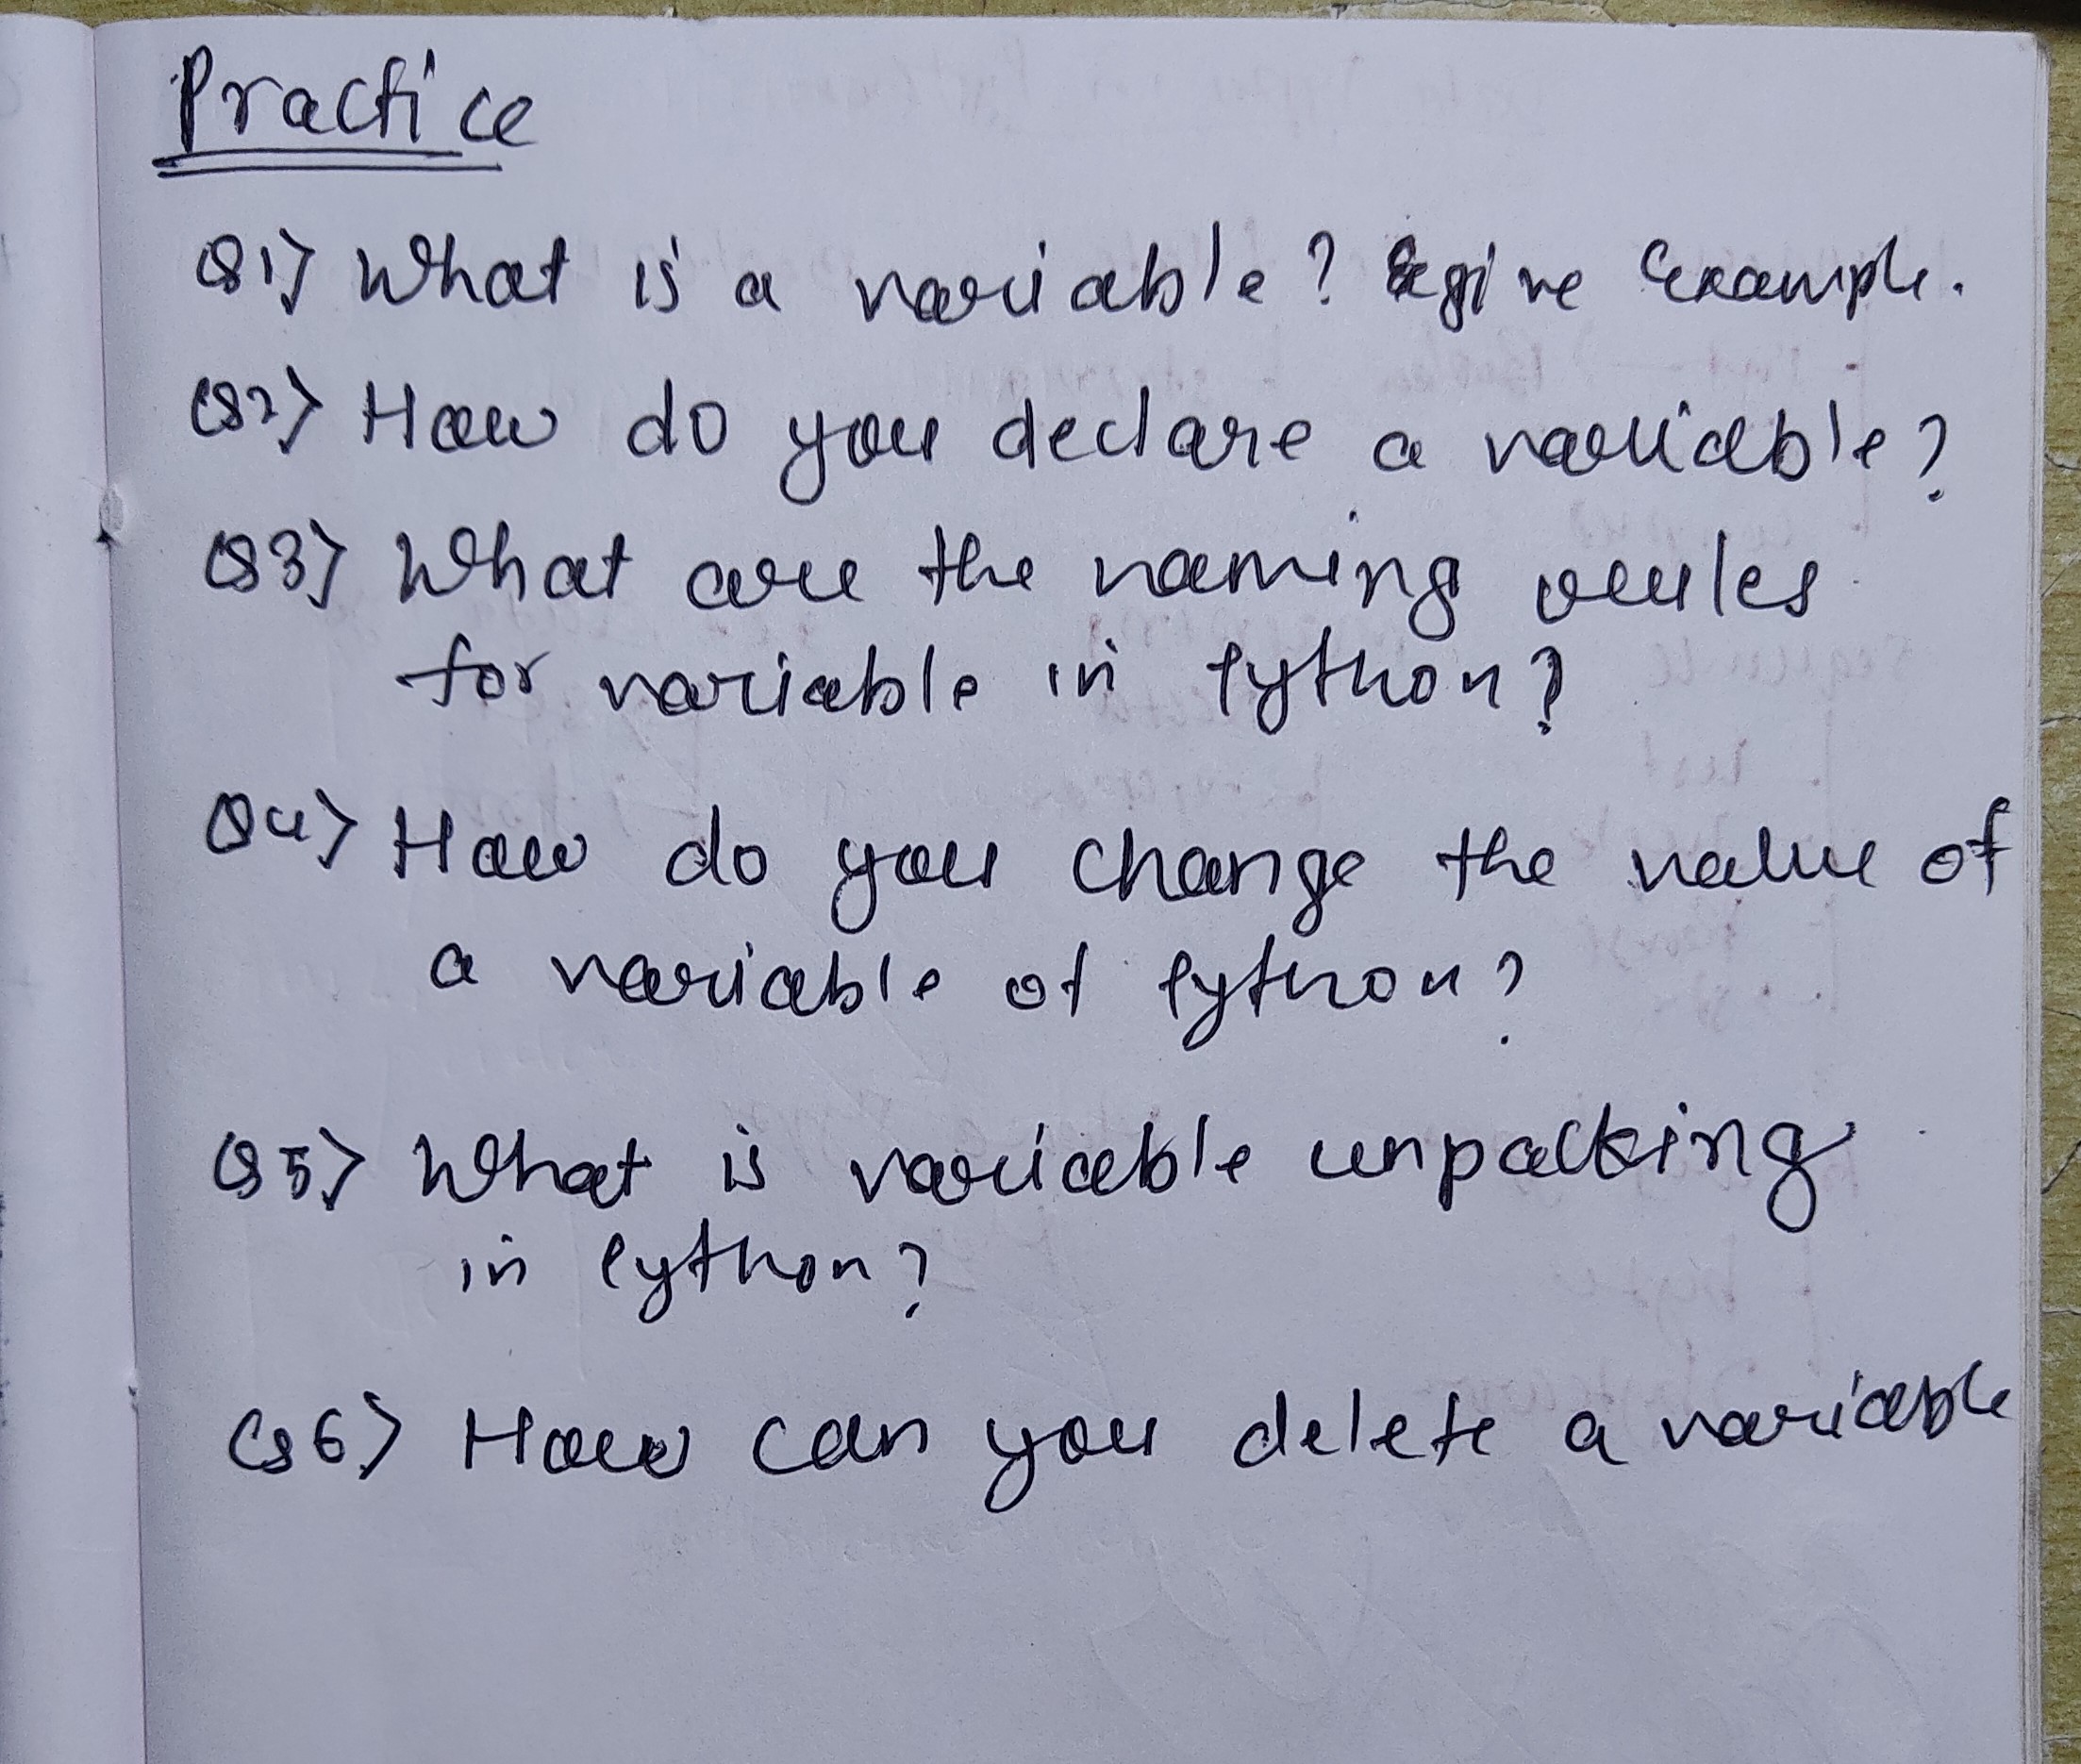 Practice
Q1) What is a variable? & give Example.
Q2) How do you declare a variable?
Q3) What are the naming rules
for variable in Python?
Q4) How do you change the value of
a variable of Python?
Q5) What is variable unpacking
in Python?
Q6) How can you delete a variable